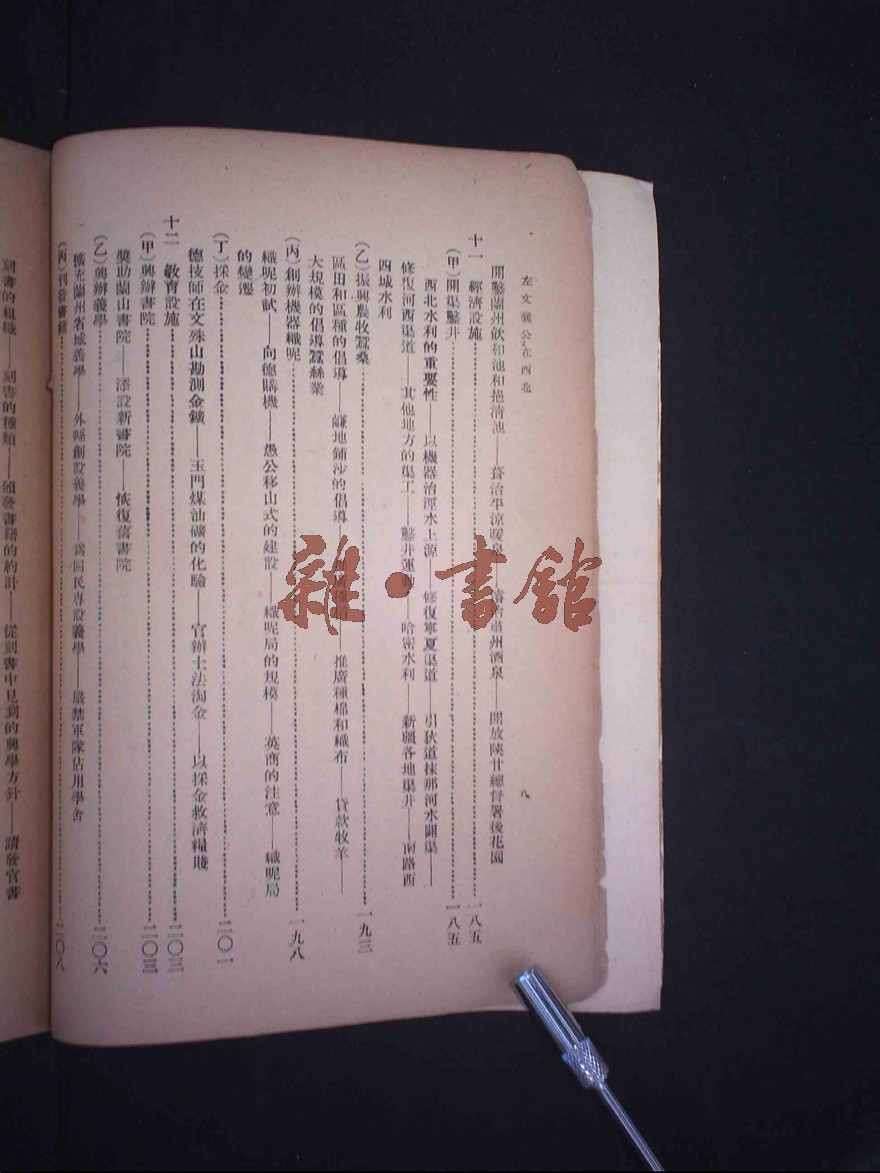 左文襄公在西北
八
開鑿蘭州飲和池和挹清池——葺治平涼暖泉——肅州酒泉——開放陝甘總督署後花園
十一 經濟設施 一八五
(甲)開渠鑿井 一八五
西北水利的重要性——以機器治涇水上源——修復寧夏渠道——引狄道抹那河水開渠——
修復河西渠道——其他地方的渠工——鑿井運動——哈密水利——新疆各地渠井——南路西
四城水利
(乙)振興農牧蠶桑 一九三
區田和區種的倡導——鹻地鋪沙的倡導——推廣種棉和織布——貸款牧羊——
大規模的倡導蠶絲業
(丙)創辦機器織呢 一九八
織呢初試——向德購機——愚公移山式的建設——織呢局的規模——英商的注意——織呢局
的變遷
(丁)採金 二〇一
德技師在文殊山勘測金鑛——玉門煤油礦的化驗——官辦土法淘金——以採金救濟糧賤
十二 教育設施 二〇三
(甲)興辦書院 二〇三
獎助蘭山書院——添設新書院——恢復舊書院
(乙)興辦義學 二〇六
擴充蘭州省城義學——外縣創設義學——爲回民專設義學——嚴禁軍隊佔用學舍
(丙)刊發書籍 二〇八
刻書的組織——刻書的種類——頒發書籍的約計——從刻書中見到的興學方針——請發官書
雜·書館